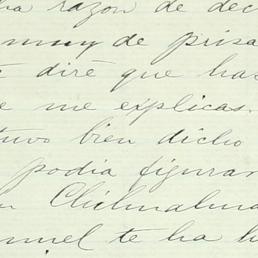 ha razon de dec
muy de prisa
diré que has
e me explicas.
tuvo bien dicho
podia figurar
n Chilmalma
nuel te ha h